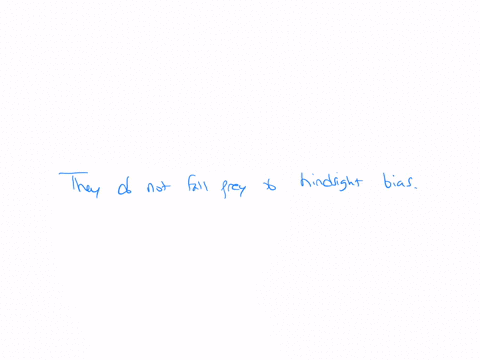 They do not fall prey to hindsight bias.